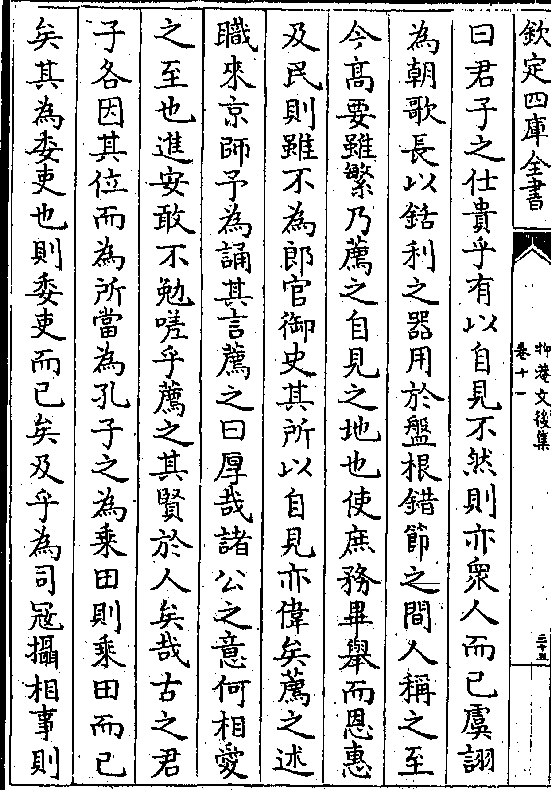 欽定四庫全書
抑菴文後集
卷十一
三十五
曰君子之仕貴乎有以自見不然則亦衆人而已虞詡
為朝歌長以銛利之器用於盤根錯節之間人稱之至
今髙要雖繁乃薦之自見之地也使庶務畢舉而恩惠
及民則雖不為郎官御史其所以自見亦偉矣薦之述
職來京師予為誦其言薦之曰厚哉諸公之意何相愛
之至也進安敢不勉嗟乎薦之其賢於人矣哉古之君
子各因其位而為所當為孔子之為乘田則乘田而已
矣其為委吏也則委吏而已矣及乎為司冦攝相事則